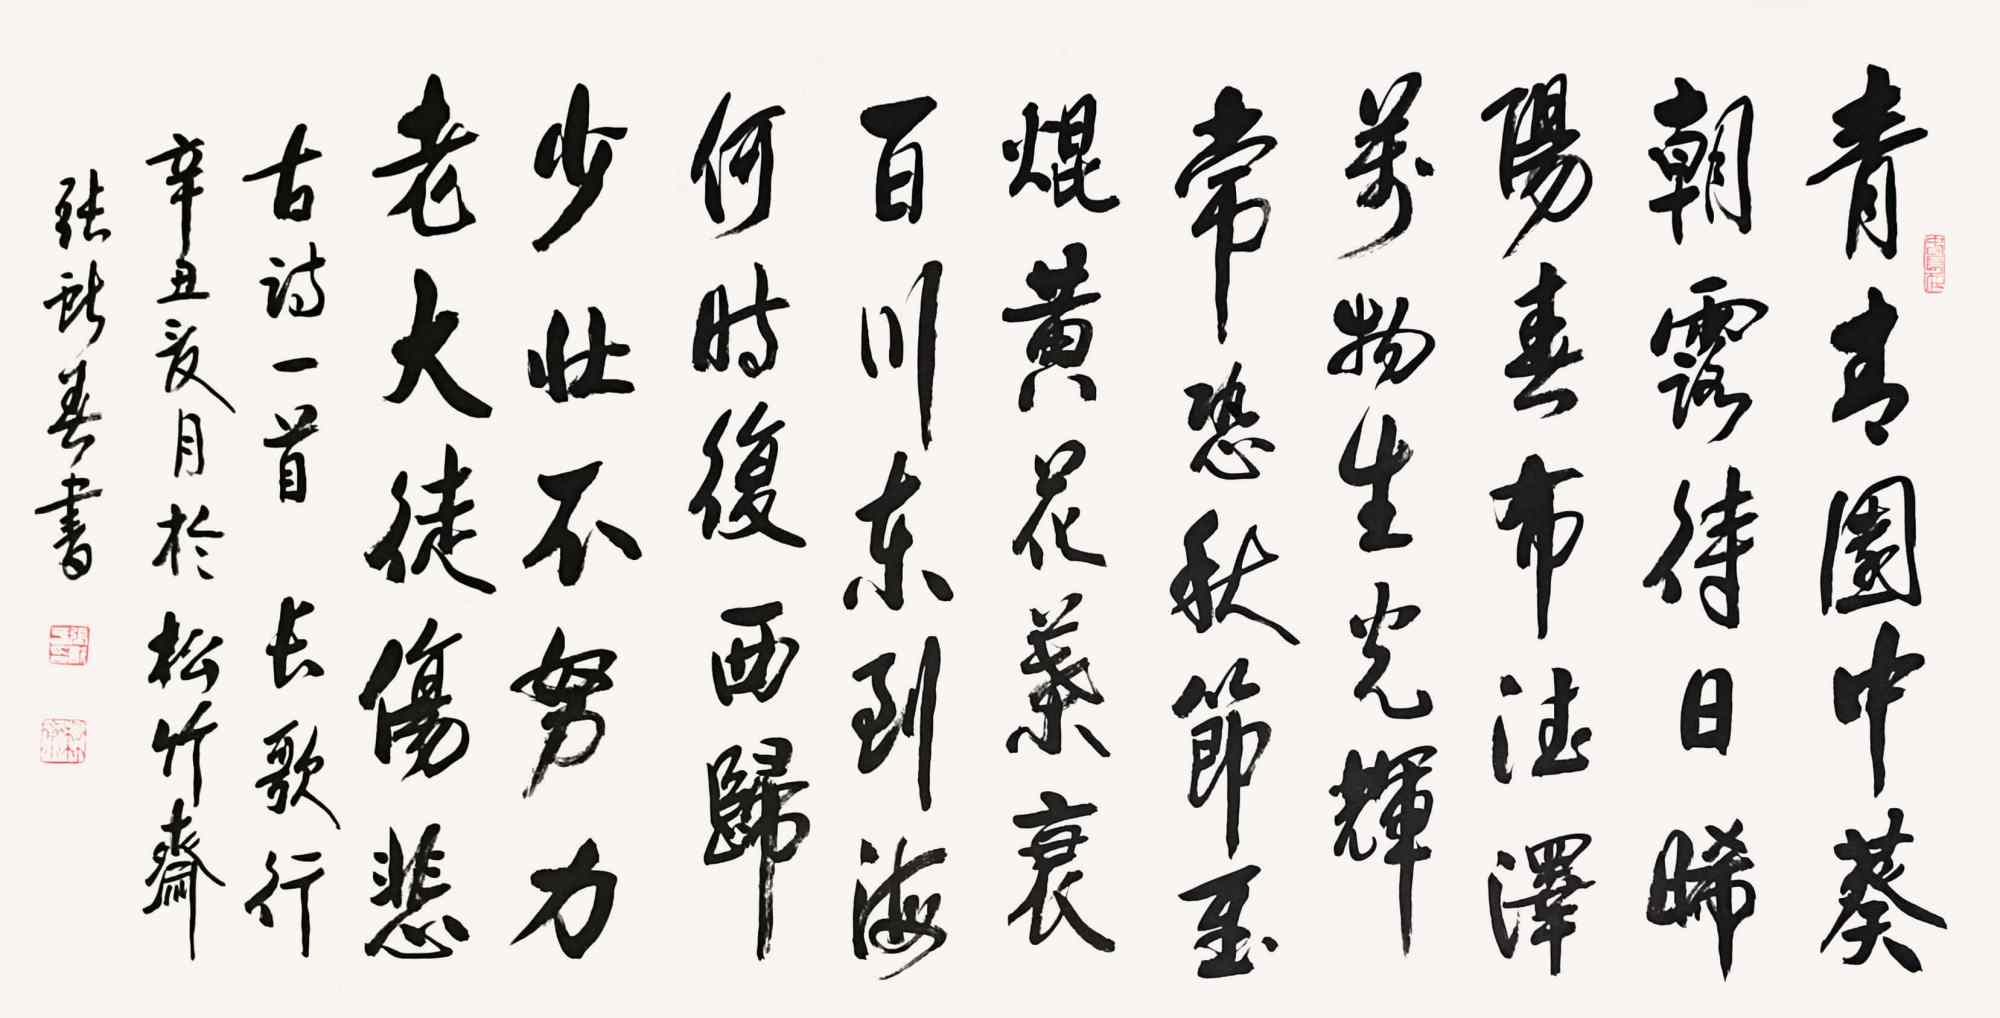 青青園中葵
朝露待日晞
陽春布德澤
萬物生光輝
常恐秋節至
焜黃花葉衰
百川東到海
何時復西歸
少壯不努力
老大徒傷悲
古詩一首 長歌行
辛丑夏月於松竹齋
張新春書